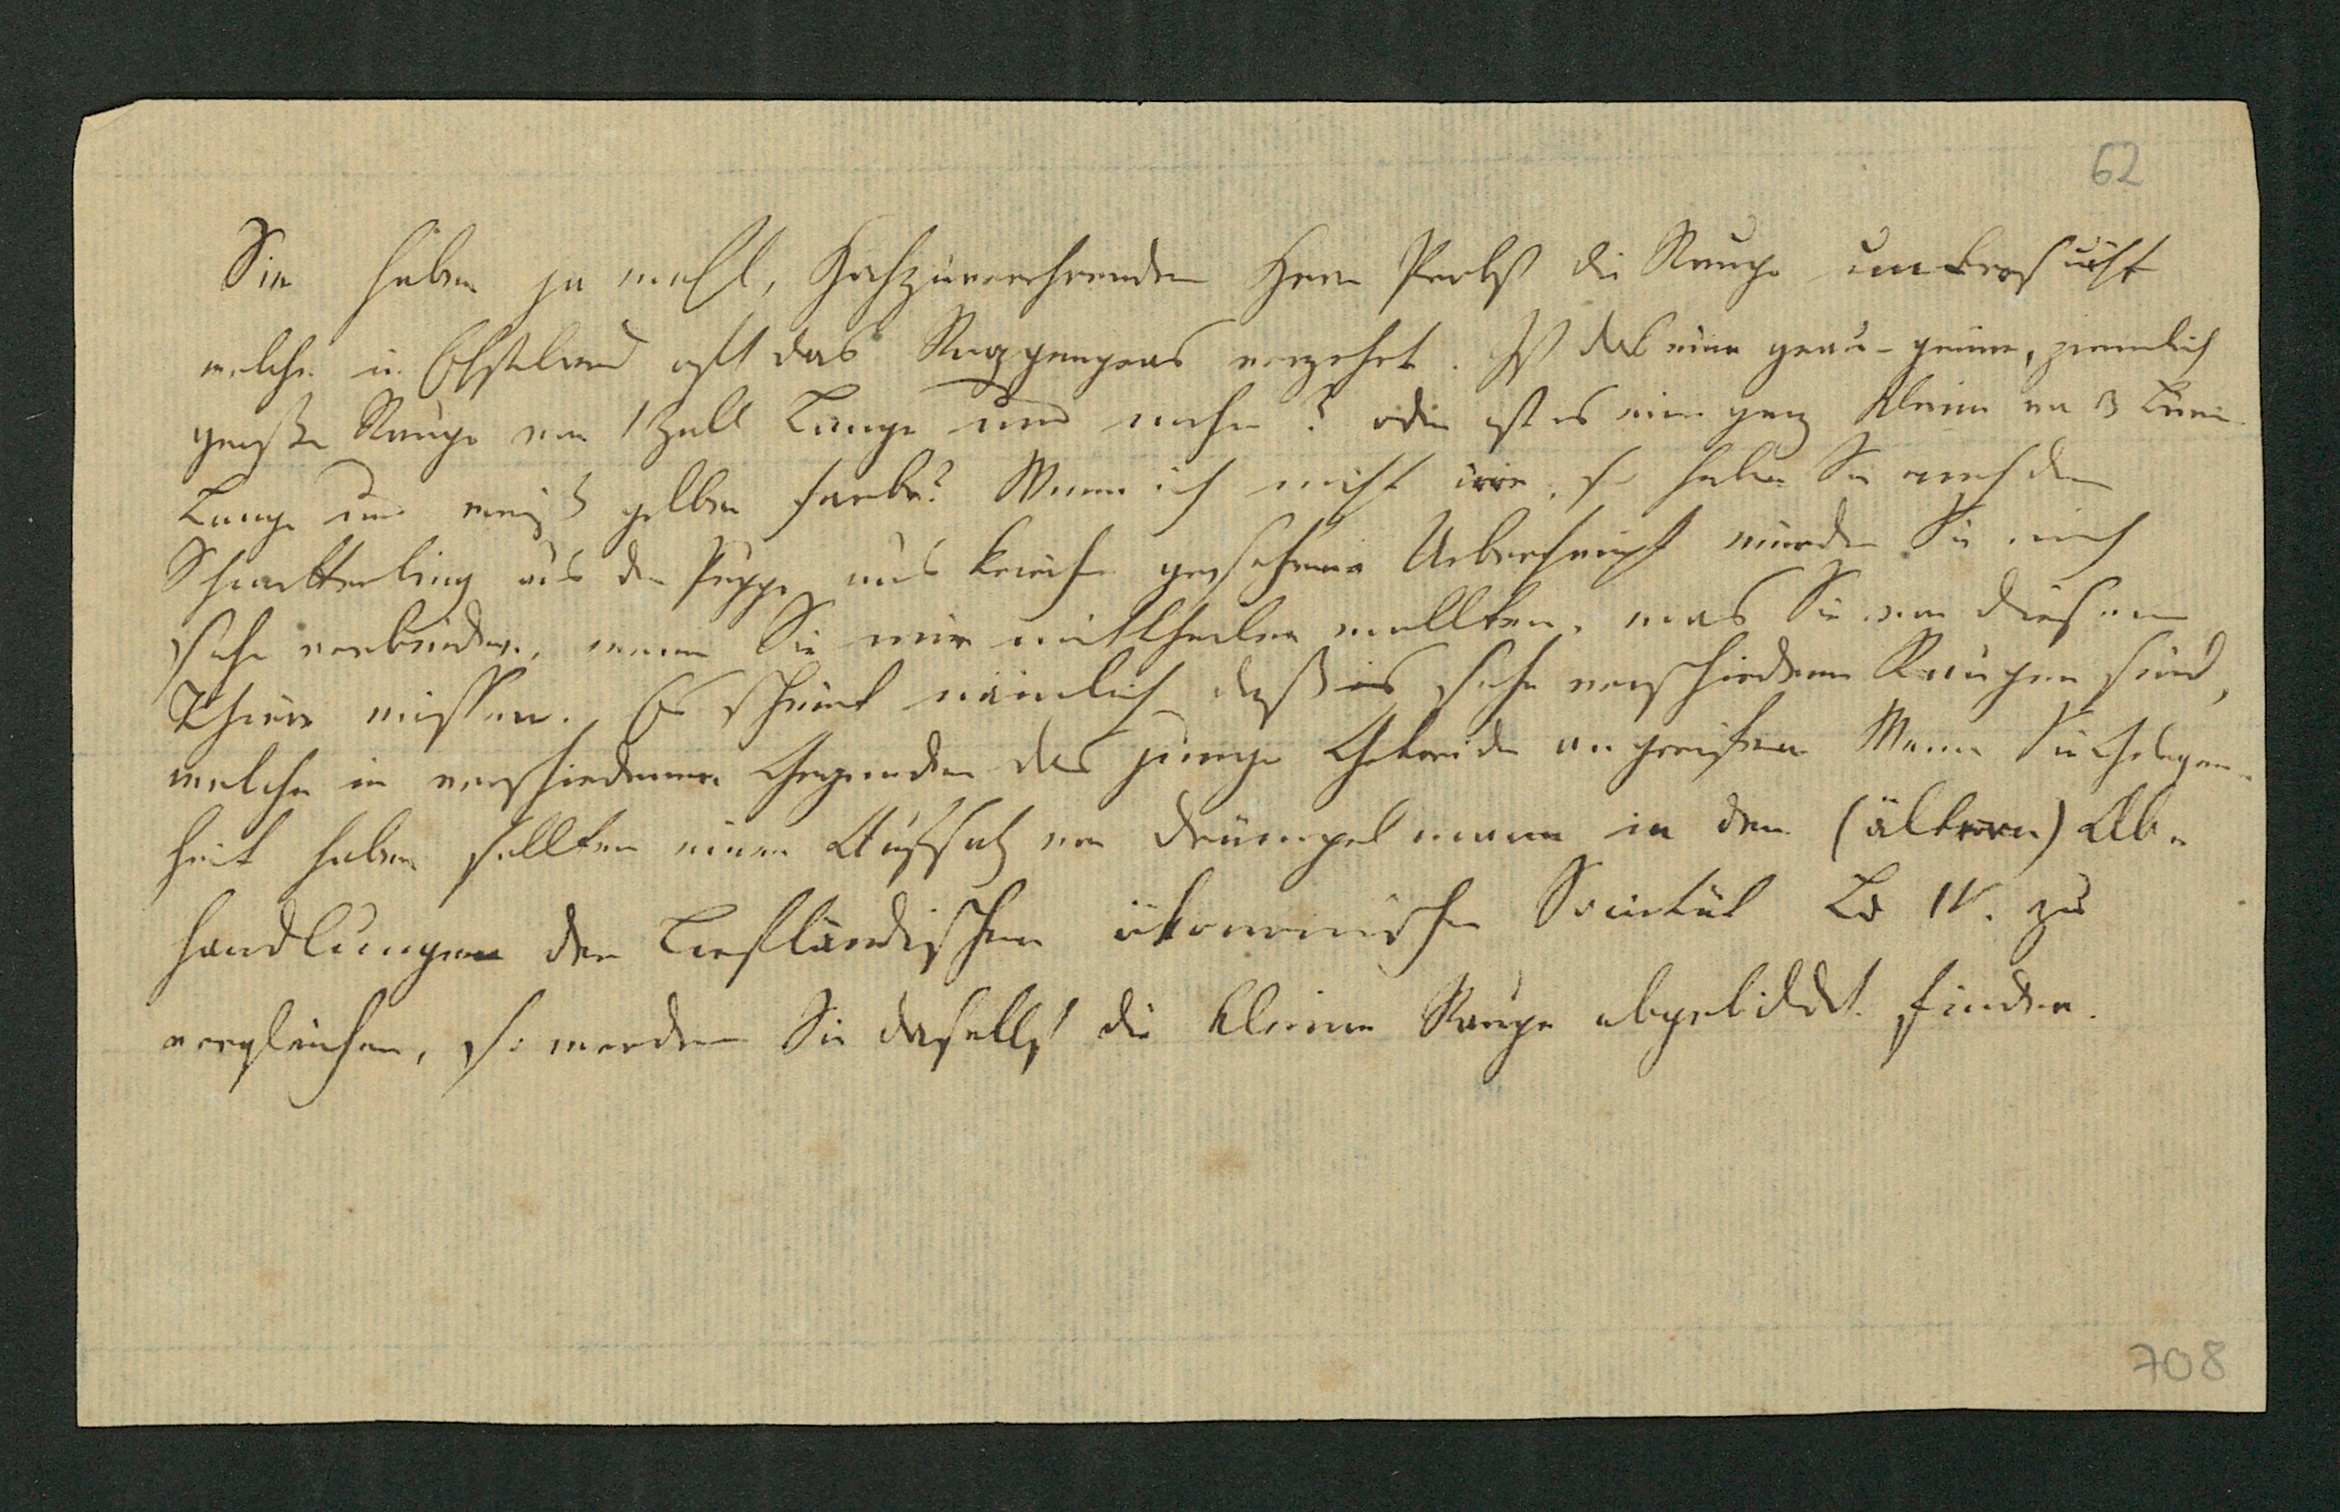 62
Sie haben ja wohl, Hochzuverehrender Herr Probst die Raupe untersucht
welche in Ehstland oft das Roggengras verzehrt. Ist das eine grau-grüne, ziemlich
große Raupe von 1 Zoll Länge und mehr? oder ist es eine ganz kleine von 3 Linien
Länge und weiß gelber Farbe? Wenn ich nicht irre, so haben Sie auch den
Schmetterling aus der Puppe aus kriechen gesehen. Ueberhaupt würden Sie mich
sehr verbinden, wenn Sie mir mittheilen wollten, was Sie von diesem
Thiere wissen. Es scheint nämlich daß es sehr verschiedene Raupen sind,
welche in verschiedenen Gegenden das junge Getreide angreifen. Wenn Sie Gelegen-
heit haben sollten einen Aufsatz von Drümpelmann in den (ältern) Ab-
handlungen der Liefländischen ökonomischen Societät Bd IV. zu
vergleichen, so werden Sie daselbst die kleine Raupe abgebildet finden.
708